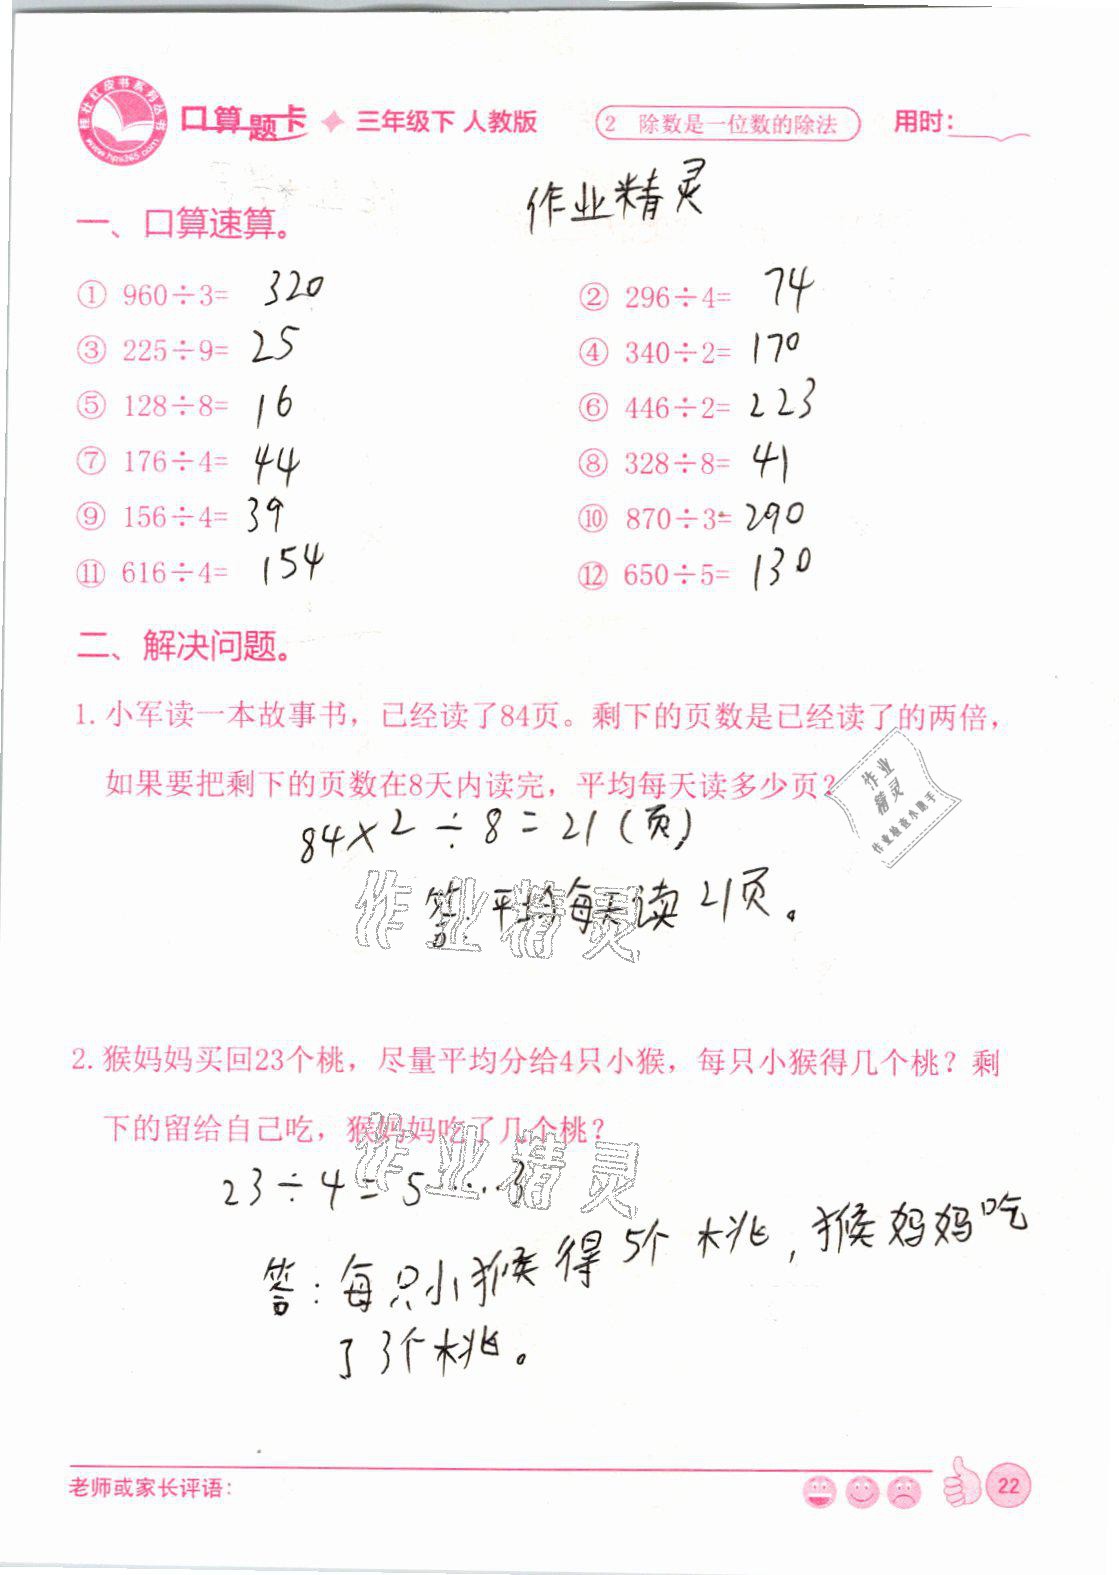 桂壮红皮书系列丛书
www.hps365.com
口算题卡 三年级下 人教版 2 除数是一位数的除法 用时:
作业精灵
一、口算速算。
① 960÷3= 320 ② 296÷4= 74
③ 225÷9= 25 ④ 340÷2= 170
⑤ 128÷8= 16 ⑥ 446÷2= 223
⑦ 176÷4= 44 ⑧ 328÷8= 41
⑨ 156÷4= 39 ⑩ 870÷3= 290
⑪ 616÷4= 154 ⑫ 650÷5= 130
二、解决问题。
1. 小军读一本故事书，已经读了84页。剩下的页数是已经读了的两倍，
如果要把剩下的页数在8天内读完，平均每天读多少页？
84×2÷8=21(页)
答:平均每天读21页。
作业精灵
作业精灵
作业检查小助手
2. 猴妈妈买回23个桃，尽量平均分给4只小猴，每只小猴得几个桃？剩
下的留给自己吃，猴妈妈吃了几个桃？
作业精灵
23÷4=5……3
答:每只小猴得5个桃,猴妈妈吃
了3个桃。
老师或家长评语:
22